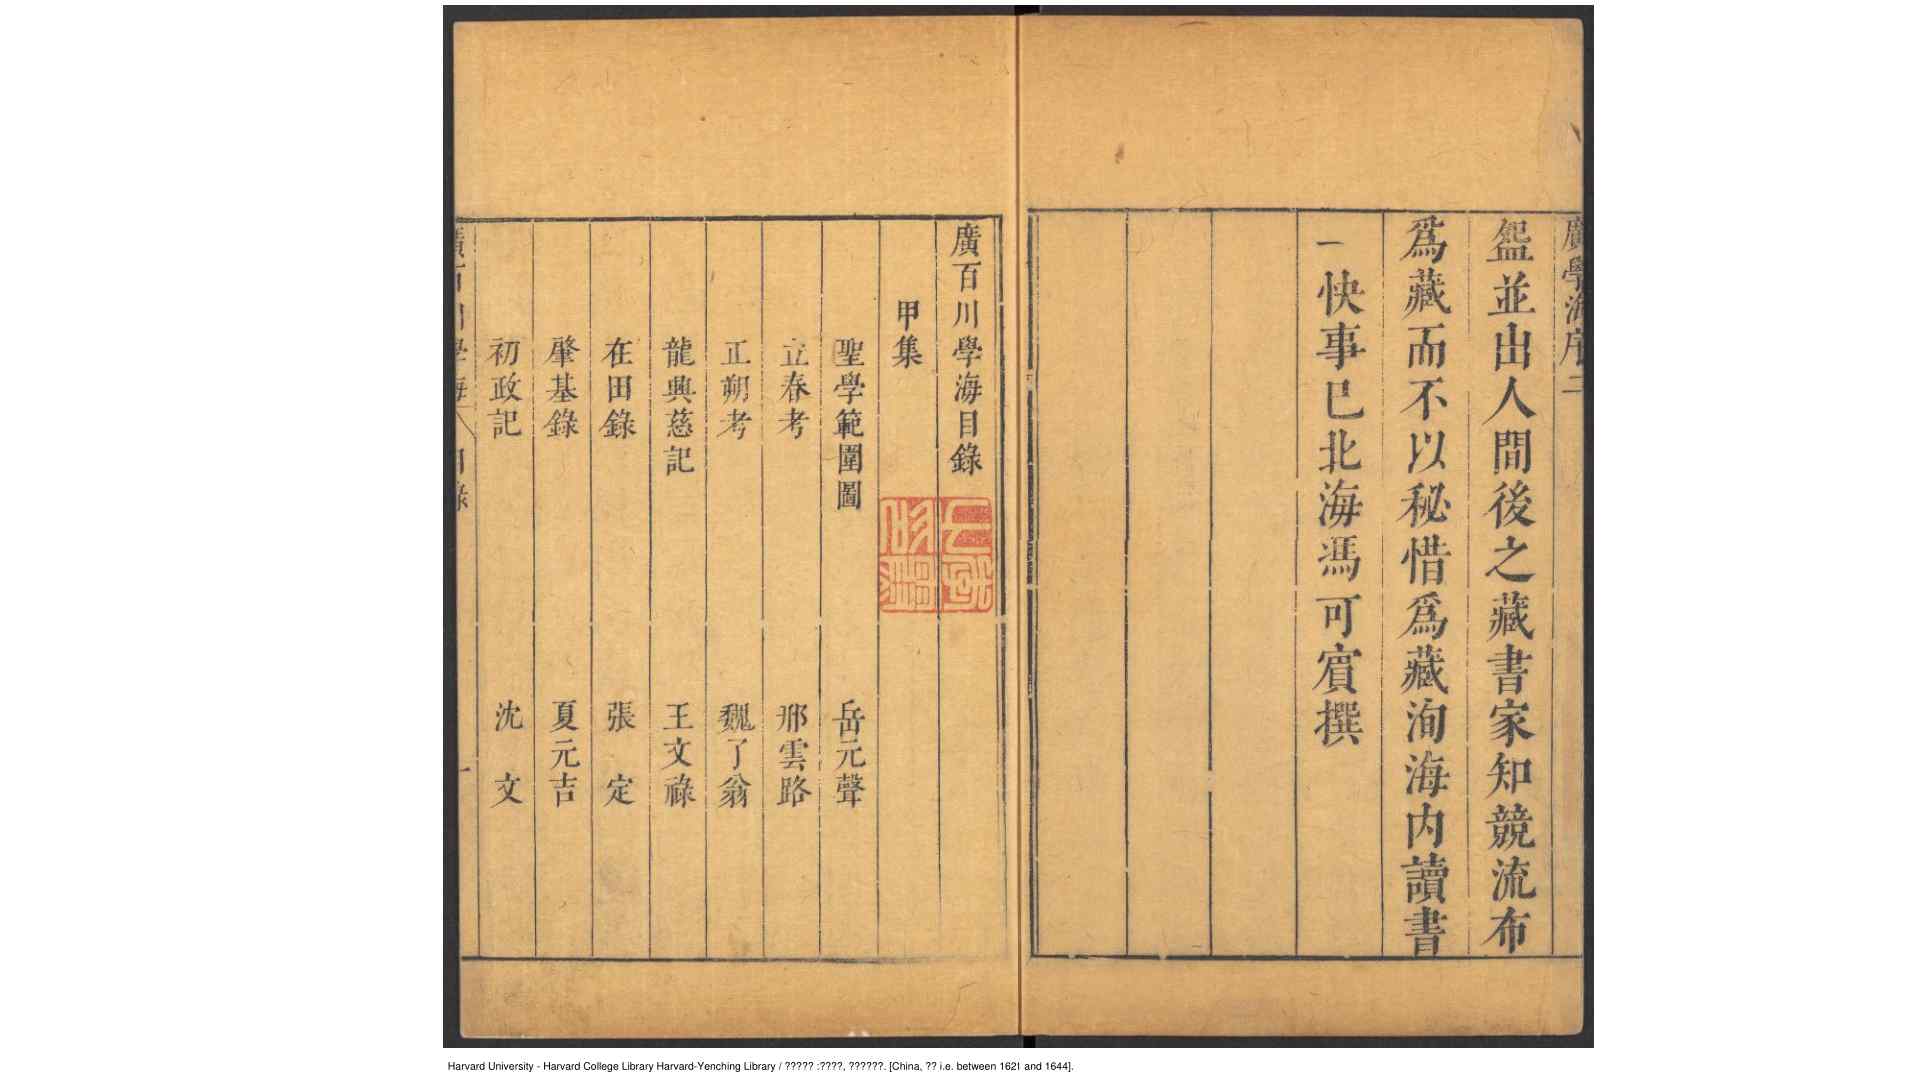 廣學海序 二
盌並出人間後之藏書家知競流布
爲藏而不以秘惜爲藏洵海内讀書
一快事巳北海馮可賔撰
廣百川學海目錄
甲集
聖學範圍圖 岳元聲
立春考 邢雲路
正朔考 魏了翁
龍興慈記 王文祿
在田錄 張定
肇基錄 夏元吉
初政記 沈文
廣百川學海 目錄 一
Harvard University - Harvard College Library Harvard-Yenching Library / ????? :????, ??????. [China, ?? i.e. between 1621 and 1644].